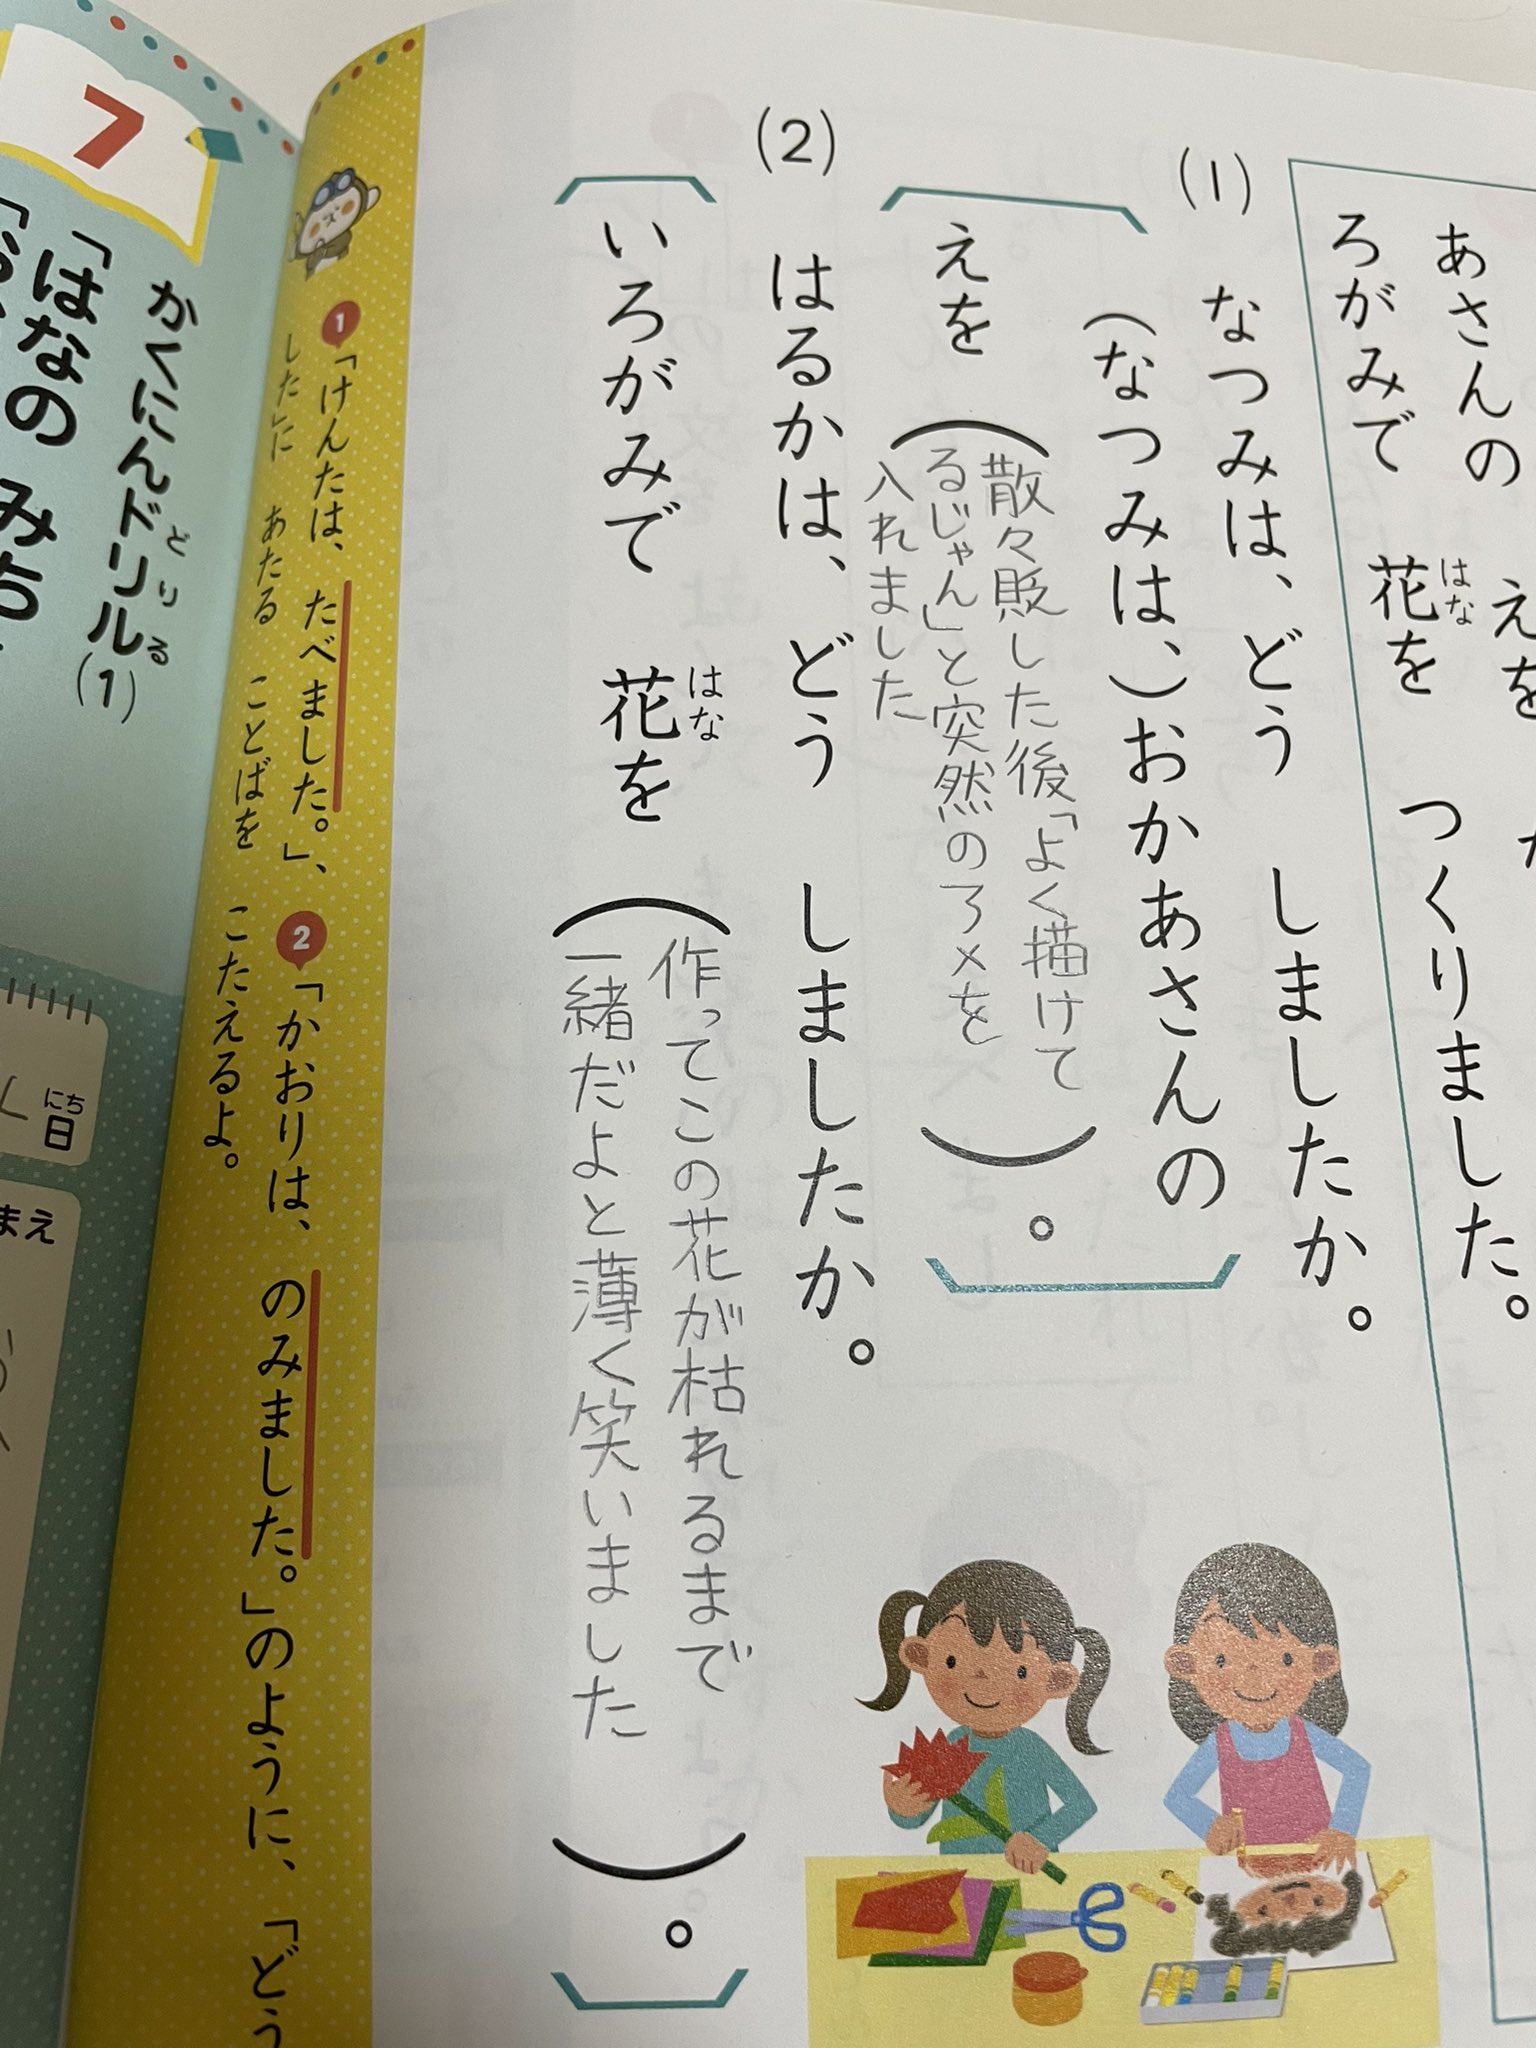 あさんの えを
ろがみで 花を つくりました。
はな
(1) なつみは、どう しましたか。
(なつみは、)おかあさんの
えを(散々貶した後「よく描けて
るじゃん」と突然のアメを
入れました)。
(2) はるかは、どう しましたか。
いろがみで 花を(作ってこの花が枯れるまで
はな
一緒だよと薄く笑いました)。
1「けんたは、たべました。」、2「かおりは、のみました。」のように、「どう
した」に あたる ことばを こたえるよ。
7
かくにんドリル(1)
どりる
「はなの みち
日
にち
まえ